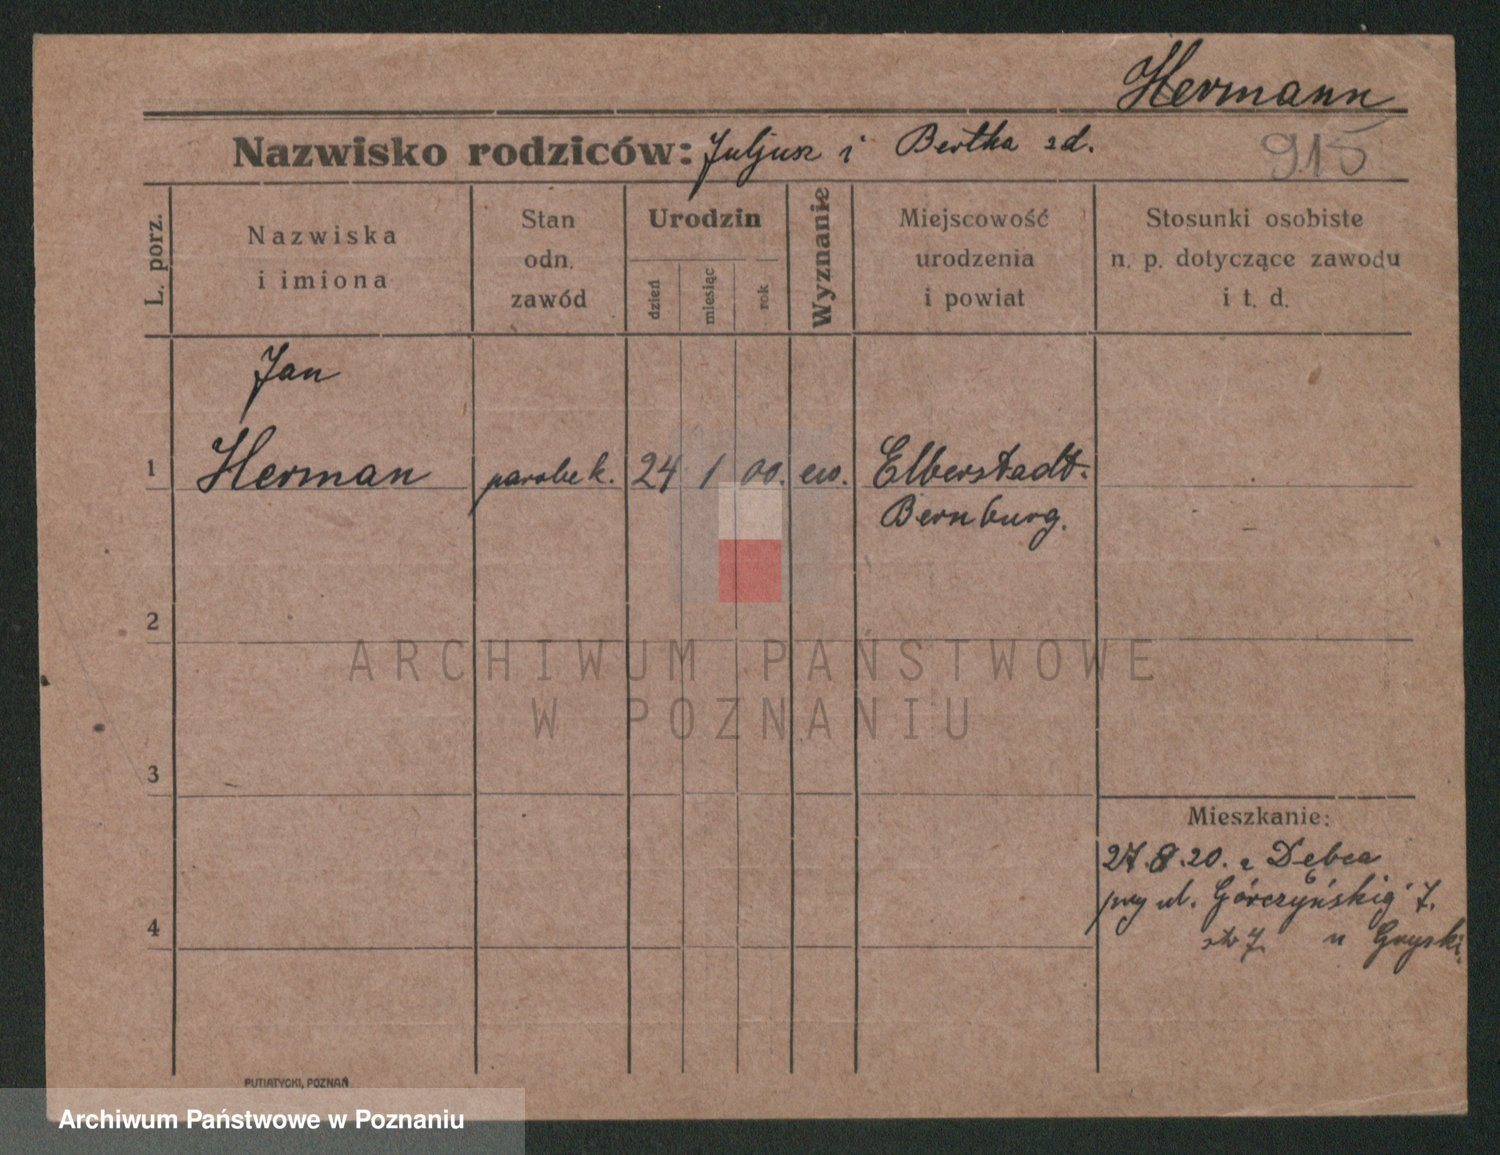 Hermann
Nazwisko rodziców: Juljusz i Bertha zd.
915
L. porz.
Nazwiska
i imiona
Stan
odn.
zawód
Urodzin
dzień
miesiąc
rok
Wyznanie
Miejscowość
urodzenia
i powiat
Stosunki osobiste
n. p. dotyczące zawodu
i t. d.
Jan
1 Herman parobek. 24 1 00. ew. Elberstadt-
Bernburg.
2
ARCHIWUM PAŃSTWOWE
W POZNANIU
3
Mieszkanie:
27.8.20. z Dębca
przy ul. Górczyńskiej 7.
4
PUTIATYCKI, POZNAŃ
Archiwum Państwowe w Poznaniu